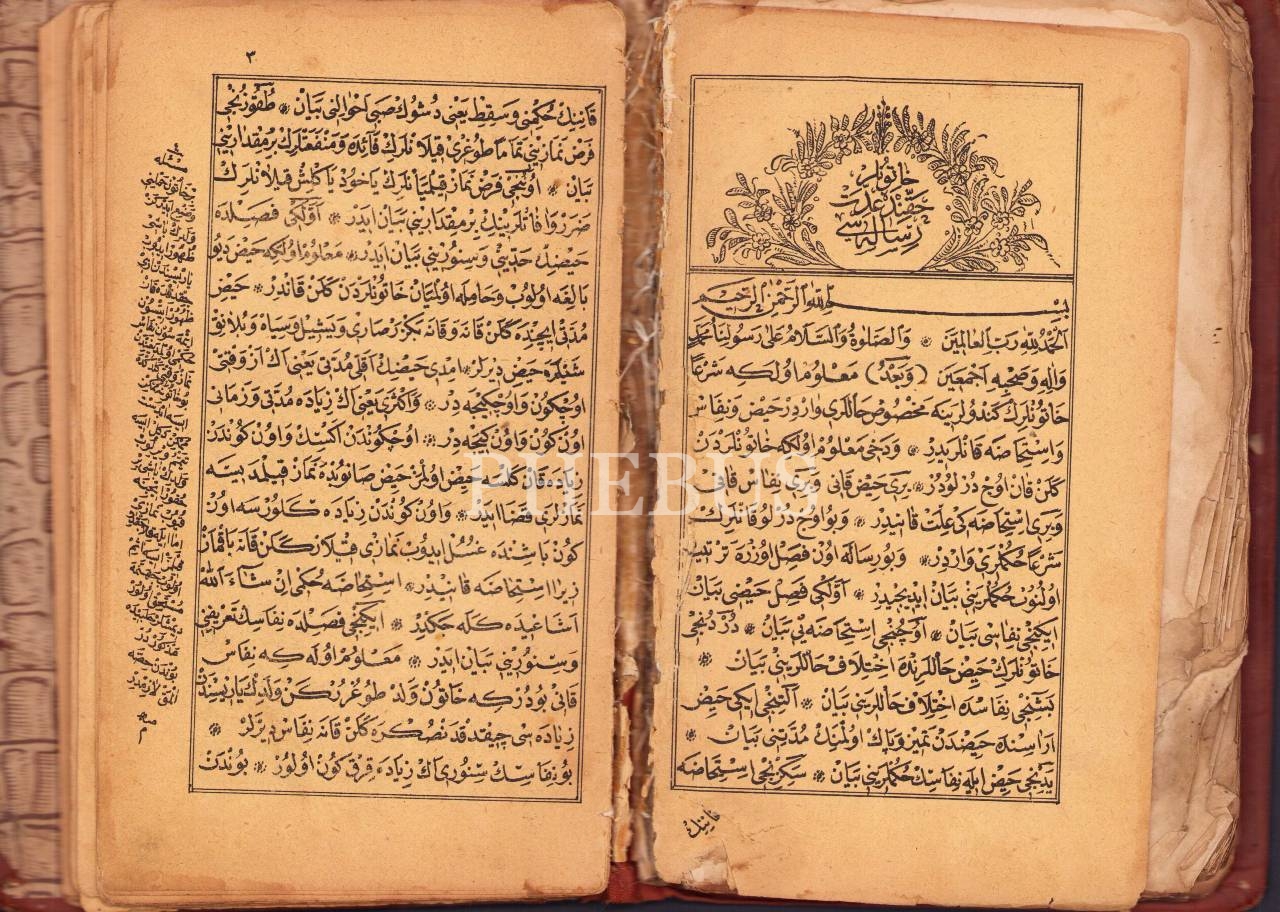 خاتونلر
حقنده عدت
رساله سی
بسم الله الرحمن الرحيم
اَلْحَمْدُ لِلّٰهِ رَبِّ الْعَالَمِينَ ❊ وَالصَّلٰوةُ وَالسَّلَامُ عَلٰى رَسُولِنَا مُحَمَّدٍ
وَاٰلِهِ وَصَحْبِهِ اَجْمَعِينَ (وَبَعْدُ) مَعْلُوم اوُلَكِه شَرْعًا
خاتونلرك كندولرينه مخصوص حاللرى واردر حيض ونفاس
واستحاضه قانلريدر ❊ ودخى معلوم اولكه خاتونلردن
كلن قان اوج درلودر ❊ برى حيض قانى وبرى نفاس قانى
وبرى استحاضه كى علت قانيدر ❊ وبو اوج درلو قانلرك
شرعا حكملرى واردر ❊ وبو رساله اون فصل اوزره ترتيب
اولنوب حكملرينى بيان ايديجيدر ❊ اولكى فصل حيضى بيان
ايكنجى نفاسى بيان ❊ اوچنجى استحاضه يى بيان ❊ دردنجى
خاتونلرك حيض حاللرنده اختلاف حاللرينى بيان ❊
بشنجى نفاسده اختلاف حاللرينى بيان ❊ التنجى ايكى حيض
اراسنده حيضدن تميز وپاك اولمنك مدتنى بيان ❊
يدنجى حيض ايله نفاسك حكملرينى بيان ❊ سكزنجى استحاضه
قانينك
٣
قانينك حكمنى وسقط يعنى دشوك صبى احوالنى بيان ❊ طقوزنجى
فرض نمازينى تماما طوغرى قيلانلرك فائده ومنفعتلرك بر مقدارينى
بيان ❊ اوننجى فرض نماز قيلميانلرك ياخود ياكلش قيلانلرك
ضرر وافاتلرينك بر مقدارينى بيان ايدر ❊ اولكى فصلده
حيضك حدينى وسنورينى بيان ايدر ❊ معلوم اولكه حيض ديو
بالغه اولوب وحامله اولميان خاتونلردن كلن قاندر ❊ حيض
مدتى ايچنده كلن قانه وقانه بكزر صارى ويشيل وسياه وبولانق
شيلره حيض ديرلر ❊ امدى حيضك اقلى مدتى يعنى اك از وقتى
اوچ كون واوچ كيجه در ❊ واكثرى يعنى اك زياده مدتى وزمانى
اون كون واون كيجه در ❊ اوچ كوندن اكسك واون كوندن
زياده قان كلسه حيض اولمز حيض صانوبده نماز قيلمديسه
نمازلرى قضا ايدر ❊ واون كوندن زياده كلورسه اون
كون باشنده غسل ايدوب نمازى قيلار كلن قانه باقماز
زيرا استحاضه قانيدر ❊ استحاضه حكمى ان شاء الله
اشاغيده كله جكدر ❊ ايكنجى فصلده نفاسك تعريفنى
وسنورينى بيان ايدر ❊ معلوم اوله كه نفاس
قانى بودركه خاتون ولد طوغرركن ولدك ياريسندن
زياده سى چيقدقدنصكره كلن قانه نفاس ديرلر ❊
بو نفاسك سنورى اك زياده قرق كون اولور ❊ بوندن
PHEBUS